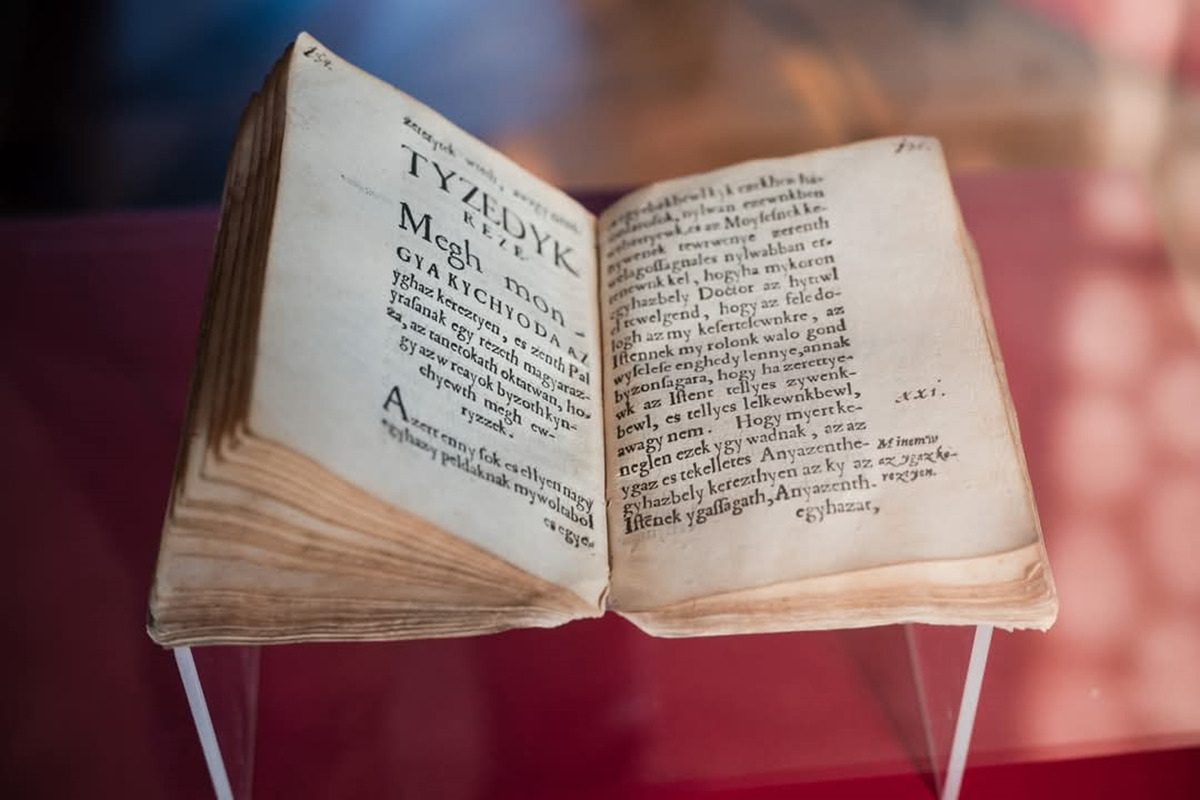 zeretyek wtach, awagy
TYZEDYK
REZE.
Megh mon-
GYA KYCHYODA AZ
yghaz kereztyen, es zenth Pal
yrasanak egy rezeth magyaraz-
za, az tanetokath oktatwan, ho-
gy az wreayok byzoth kyn-
chyewth megh ew-
ryzzek.
Azert enny sok es ellyen nagy
egyhazy peldaknak mywoltabol
es egye-
ezekben ha-
nylwan ezewnkben
es az Moysesnek ke-
tewrwenye zerenth
nylwabban er-
kel, hogyha mykoron
egyhazbely Doctor az hyttwl
el tewelgend, hogy az fele do-
logh az my kesertesewnkre, az
Istennek my rolonk walo gond
wyselese enghedy lennye, annak
byzonsagara, hogy ha zerettye-
wk az Istent tellyes zywenk-
bewl, es tellyes lelkewnkbewl,
awagy nem. Hogy myert ke-
neglen ezek ygy wadnak, az az
ygaz es tekelletes Anyazenthe-
gyhazbely kerezthyen az ky az
Istēnek ygassagath, Anyazenth.
egyhazat,
xxi.
Minemw
az ygaz ke-
reztyen.